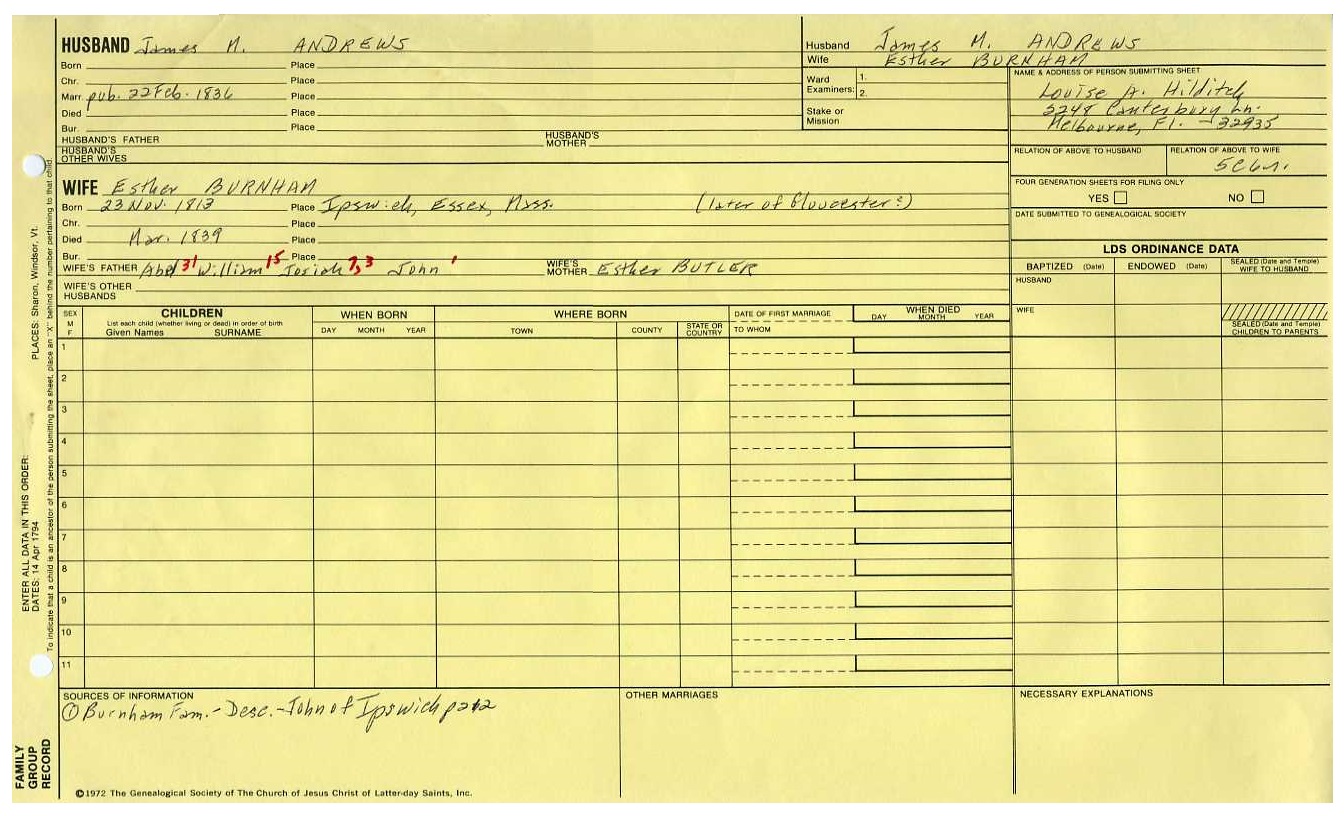 HUSBAND James M. ANDREWS
Born Place
Chr. Place
Marr. pub. 22 Feb. 1836 Place
Died Place
Bur. Place
HUSBAND'S FATHER HUSBAND'S MOTHER
HUSBAND'S OTHER WIVES
Husband James M. ANDREWS
Wife Esther BURNHAM
Ward Examiners: 1.
2.
Stake or Mission
NAME & ADDRESS OF PERSON SUBMITTING SHEET
Louise A. Hilditch
Canterbury Ln.
Melbourne, Fl. - 32935
RELATION OF ABOVE TO HUSBAND RELATION OF ABOVE TO WIFE
5C6n.
FOUR GENERATION SHEETS FOR FILING ONLY
YES NO
DATE SUBMITTED TO GENEALOGICAL SOCIETY
WIFE Esther BURNHAM
Born 23 Nov. 1813 Place Ipswich, Essex, Mass. (later of Gloucester?)
Chr. Place
Died Mar. 1839 Place
Bur. Place
WIFE'S FATHER Abel 31 William 15 Josiah 7,3 John 1 WIFE'S MOTHER Esther BUTLER
WIFE'S OTHER HUSBANDS
LDS ORDINANCE DATA
BAPTIZED (Date) ENDOWED (Date) SEALED (Date and Temple) WIFE TO HUSBAND
HUSBAND
WIFE
SEALED (Date and Temple) CHILDREN TO PARENTS
SEX M F
CHILDREN
List each child (whether living or dead) in order of birth
Given Names SURNAME
WHEN BORN
DAY MONTH YEAR
WHERE BORN
TOWN COUNTY STATE OR COUNTRY
DATE OF FIRST MARRIAGE
TO WHOM
WHEN DIED
DAY MONTH YEAR
1
2
3
4
5
6
7
8
9
10
11
SOURCES OF INFORMATION
① Burnham Fam. - Desc. - John of Ipswich
OTHER MARRIAGES
NECESSARY EXPLANATIONS
©1972 The Genealogical Society of The Church of Jesus Christ of Latter-day Saints, Inc.
FAMILY GROUP RECORD
ENTER ALL DATA IN THIS ORDER:
DATES: 14 Apr 1794
PLACES: Sharon, Windsor, Vt.
To indicate that a child is an ancestor of the person submitting the sheet, place an "X" behind the number pertaining to that child.